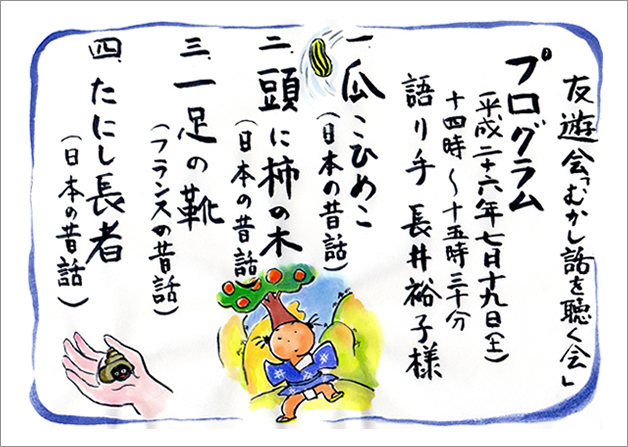 友遊会「むかし話を聴く会」
プログラム
平成二十六年七月十九日(土)
十四時～十五時三十分
語り手 長井裕子様
一.瓜こひめこ
(日本の昔話)
二.頭に柿の木
(日本の昔話)
三.一足の靴
(フランスの昔話)
四.たにし長者
(日本の昔話)